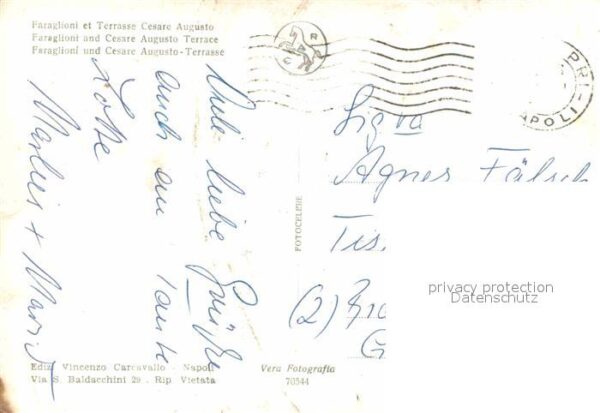 Faraglioni et Terrasse Cesare Augusto
Faraglioni and Cesare Augusto Terrace
Faraglioni und Cesare Augusto-Terrasse
Viele liebe Grüße
auch an Tante
Lotte
Marlies + Mario
FOTOCELERE
Sig.ra
Agnes Fälsch
Tis.
(2)
privacy protection
Datenschutz
Ediz. Vincenzo Carcavallo - Napoli
Via S. Baldacchini 29 - Rip Vietata
Vera Fotografia
70544
CAPRI
NAPOLI